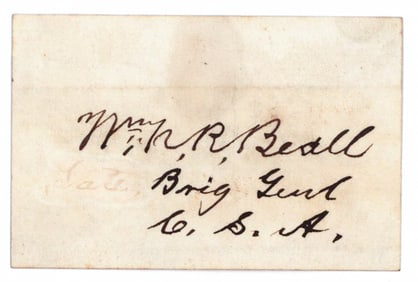 Wm, N, R, Beall
Brig Genl
C. S. A.